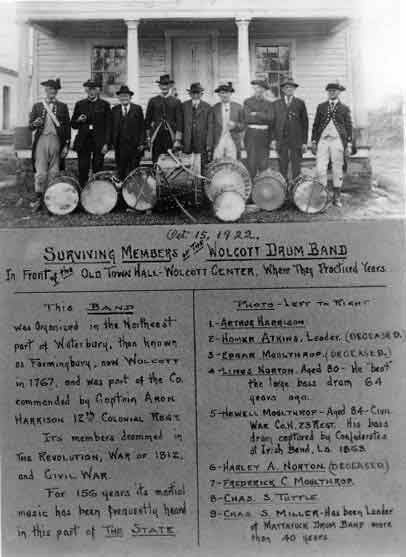 Oct. 15, 1922.
SURVIVING MEMBERS OF THE WOLCOTT DRUM BAND
In Front of the OLD TOWN HALL - WOLCOTT CENTER, Where They Practiced Years.
This BAND
was Organized in the Northeast
part of Waterbury, then known
as Farmingbury, now WOLCOTT
in 1767, and was part of the Co.
commanded by Captain ARON
HARRISON 12TH COLONIAL REGT.
Its members drummed in
THE REVOLUTION, WAR OF 1812,
and CIVIL WAR.
For 156 years its martial
music has been frequently heard
in this part of THE STATE
PHOTO - LEFT TO RIGHT
1 - ARTHUR HARRISON
2 - HOMER ATKINS, Leader. (DECEASED)
3 - EDGAR MOULTHROP. (DECEASED.)
4 - LINUS NORTON. Aged 80 - He "beat"
the large bass drum 64
years ago.
5 - NEWELL MOULTHROP - Aged 84 - CIVIL
WAR CO. H. 23 REGT. His bass
drum captured by Confederates
at Irish Bend, La. 1863.
6 - HARLEY A. NORTON (DECEASED)
7 - FREDERICK C MOULTHROP.
8 - CHAS. S. TUTTLE
9 - CHAS S. MILLER - Has been Leader
of MATTATUCK DRUM BAND more
than 40 years.